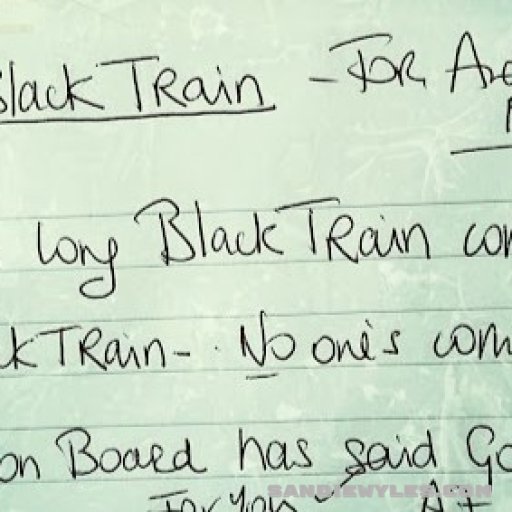 Black TRain - FOR Are
long Black TRain com
ck TRain - . No one's com
on Board has said Go
For you
SANDIEWYLES.COM